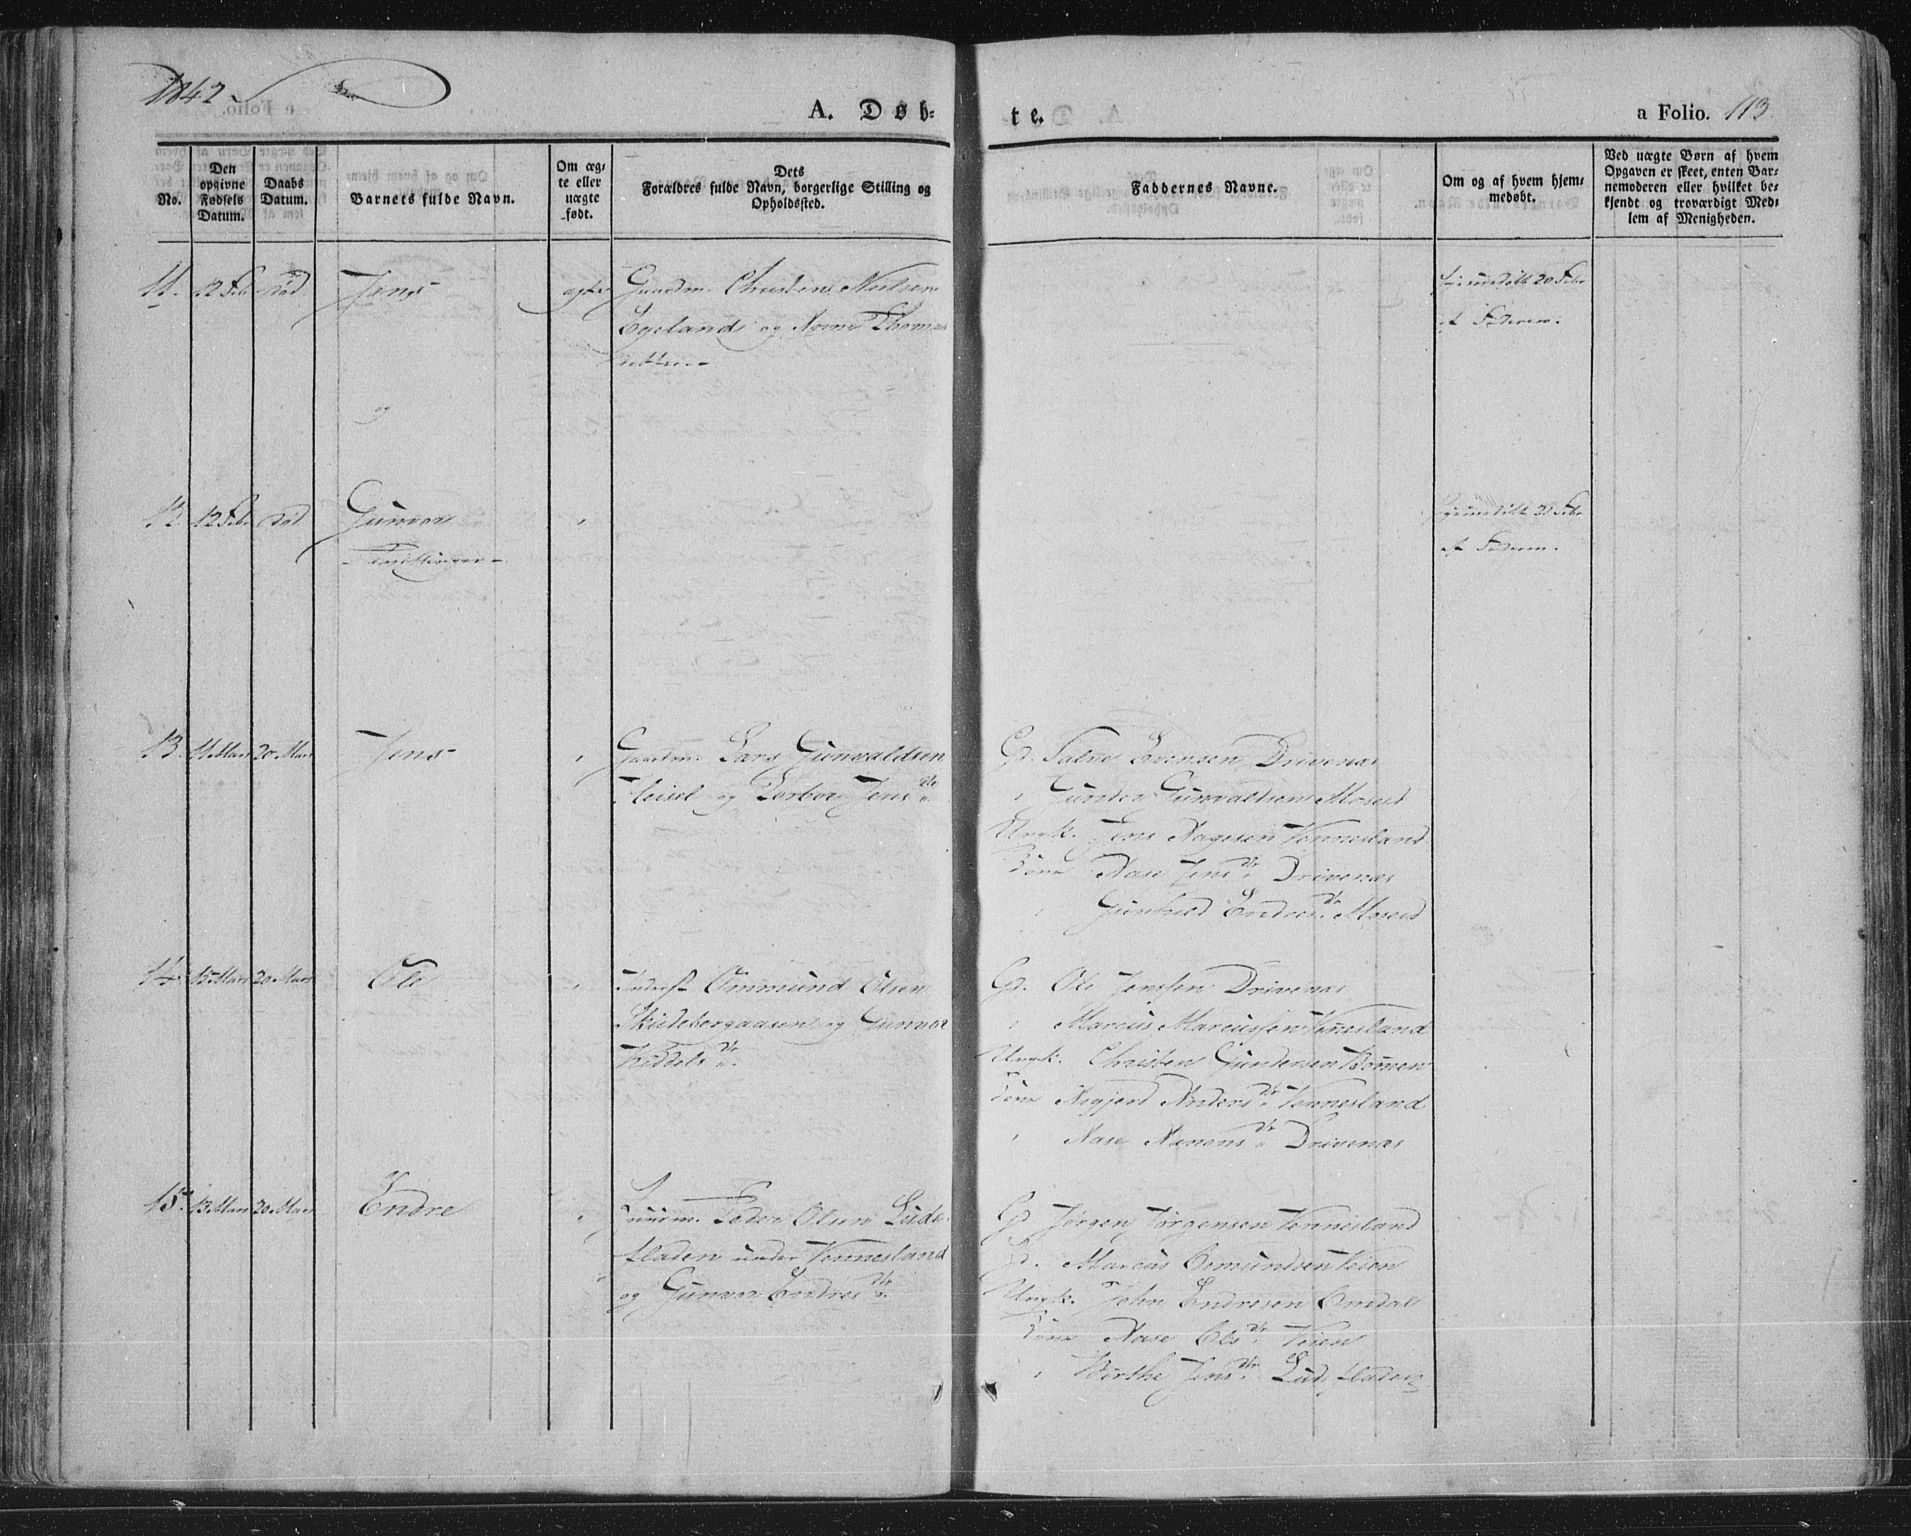 1842
A. Døb-
te.
a Folio. 113.
No.
Den opgivne Fødsels Datum.
Daabs Datum.
Barnets fulde Navn.
Om æg-te eller uægte født.
Dets Forældres fulde Navn, borgerlige Stilling og Opholdssted.
Faddernes Navne.
Om og af hvem hjem-medøbt.
Ved uægte Børn af hvem Opgaven er skeet, enten Bar-nemoderen eller hvilket be-kjendt og troværdigt Med-lem af Menigheden.
11. 12 Feb død Jens ægte Gaardm. Christen Nielsen
Egeland og Anne Thomas
hjemmedøbt 20 Febr
af Faderen.
og
12. 12 Feb. død Gunvor
Tvillinger
hjemmedøbt 20 Febr
af Faderen.
13. 14 Mars 20 Mars Jens Gaardm. Lars Gunvaldsen
Heisel og Torbor Jens Dtr
Gd. Salve Evensen Drivenæs
Gunder Gunvaldsen Moseid
Ungk. Jens Aagesen Vennesland
Kone Aase Jens Dtr Drivenæs
Gunhild Endres Dtr Moseid
14. 15 Mars 20 Mars Ole Inderst Ommund Olsen
og Gunvor
Kiddels Dtr.
Gd. Ole Jenssen Drivenæs
Marcus Marcussen Vennesland
Ungk. Christen Gundersen
Kone Anders Dtr Vennesland
Aase Aanens Dtr Drivenæs
15. 13 Mars 20 Mars Endre Huusm. Peder Olsen Lude-
fladen under Vennesland
og Gunvor Endres Dtr.
Gd. Jørgen Jørgensen Vennesland
Gd. Marcus Osmundsen Veien
Ungk. John Endresen Omdal
Kone Aase Ols Dtr Veien
Birthe Jens Dtr Ludefladen